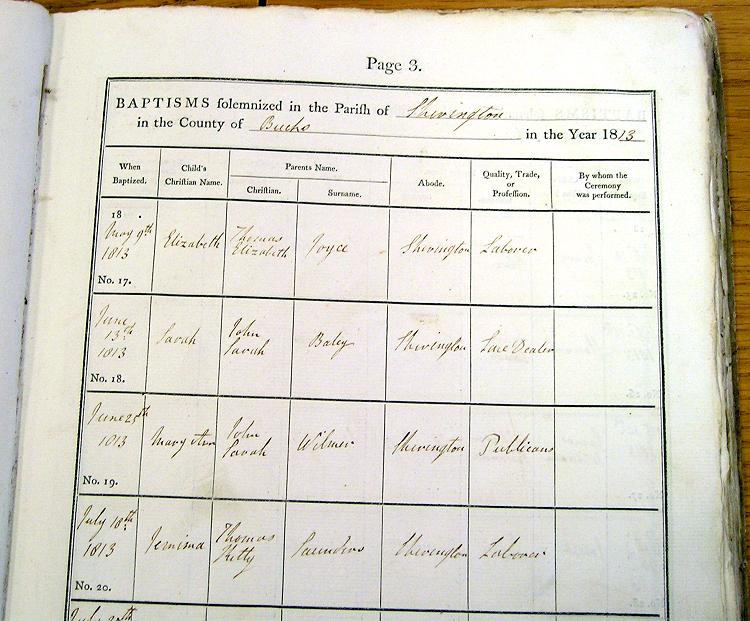 Page 3.
BAPTISMS ſolemnized in the Pariſh of Sherington
in the County of Bucks in the Year 1813
When Baptized. Child's Chriſtian Name. Parents Name. Abode. Quality, Trade, or Profeſſion. By whom the Ceremony was performed.
Chriſtian. Surname.
18 .
May 9th 1813 Elizabeth Thomas Elizabeth Joyce Sherington Laborer
No. 17.
June 13th 1813 Sarah John Sarah Baley Sherington Lace Dealer
No. 18.
June 25th 1813 Mary Ann John Sarah Wilmer Sherington Publicans
No. 19.
July 18th 1813 Jemima Thomas Kitty Saunders Sherington Laborer
No. 20.